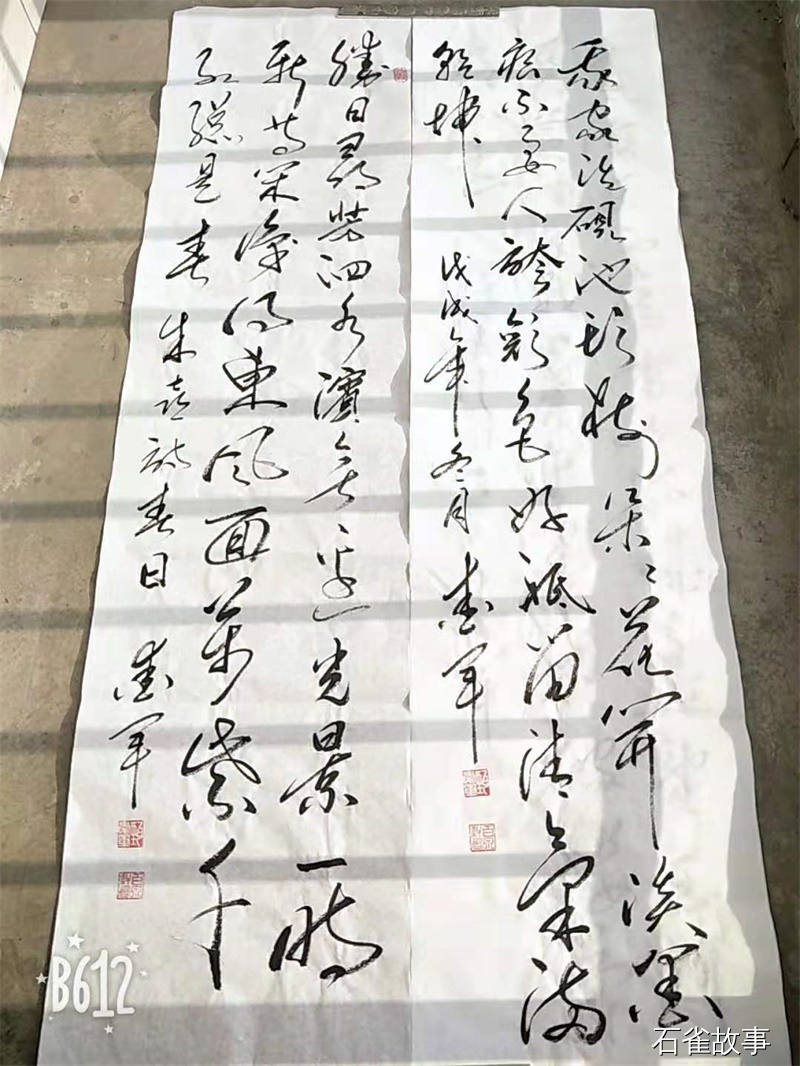 我家洗硯池頭樹朵々花開淡墨
痕不要人誇顏色好祗留清氣滿
乾坤 戊戌年冬月
勝日尋芳泗水濱無邊光景一時
新等閒識得東風面萬紫千
紅總是春 朱熹詩春日
B612
石雀故事